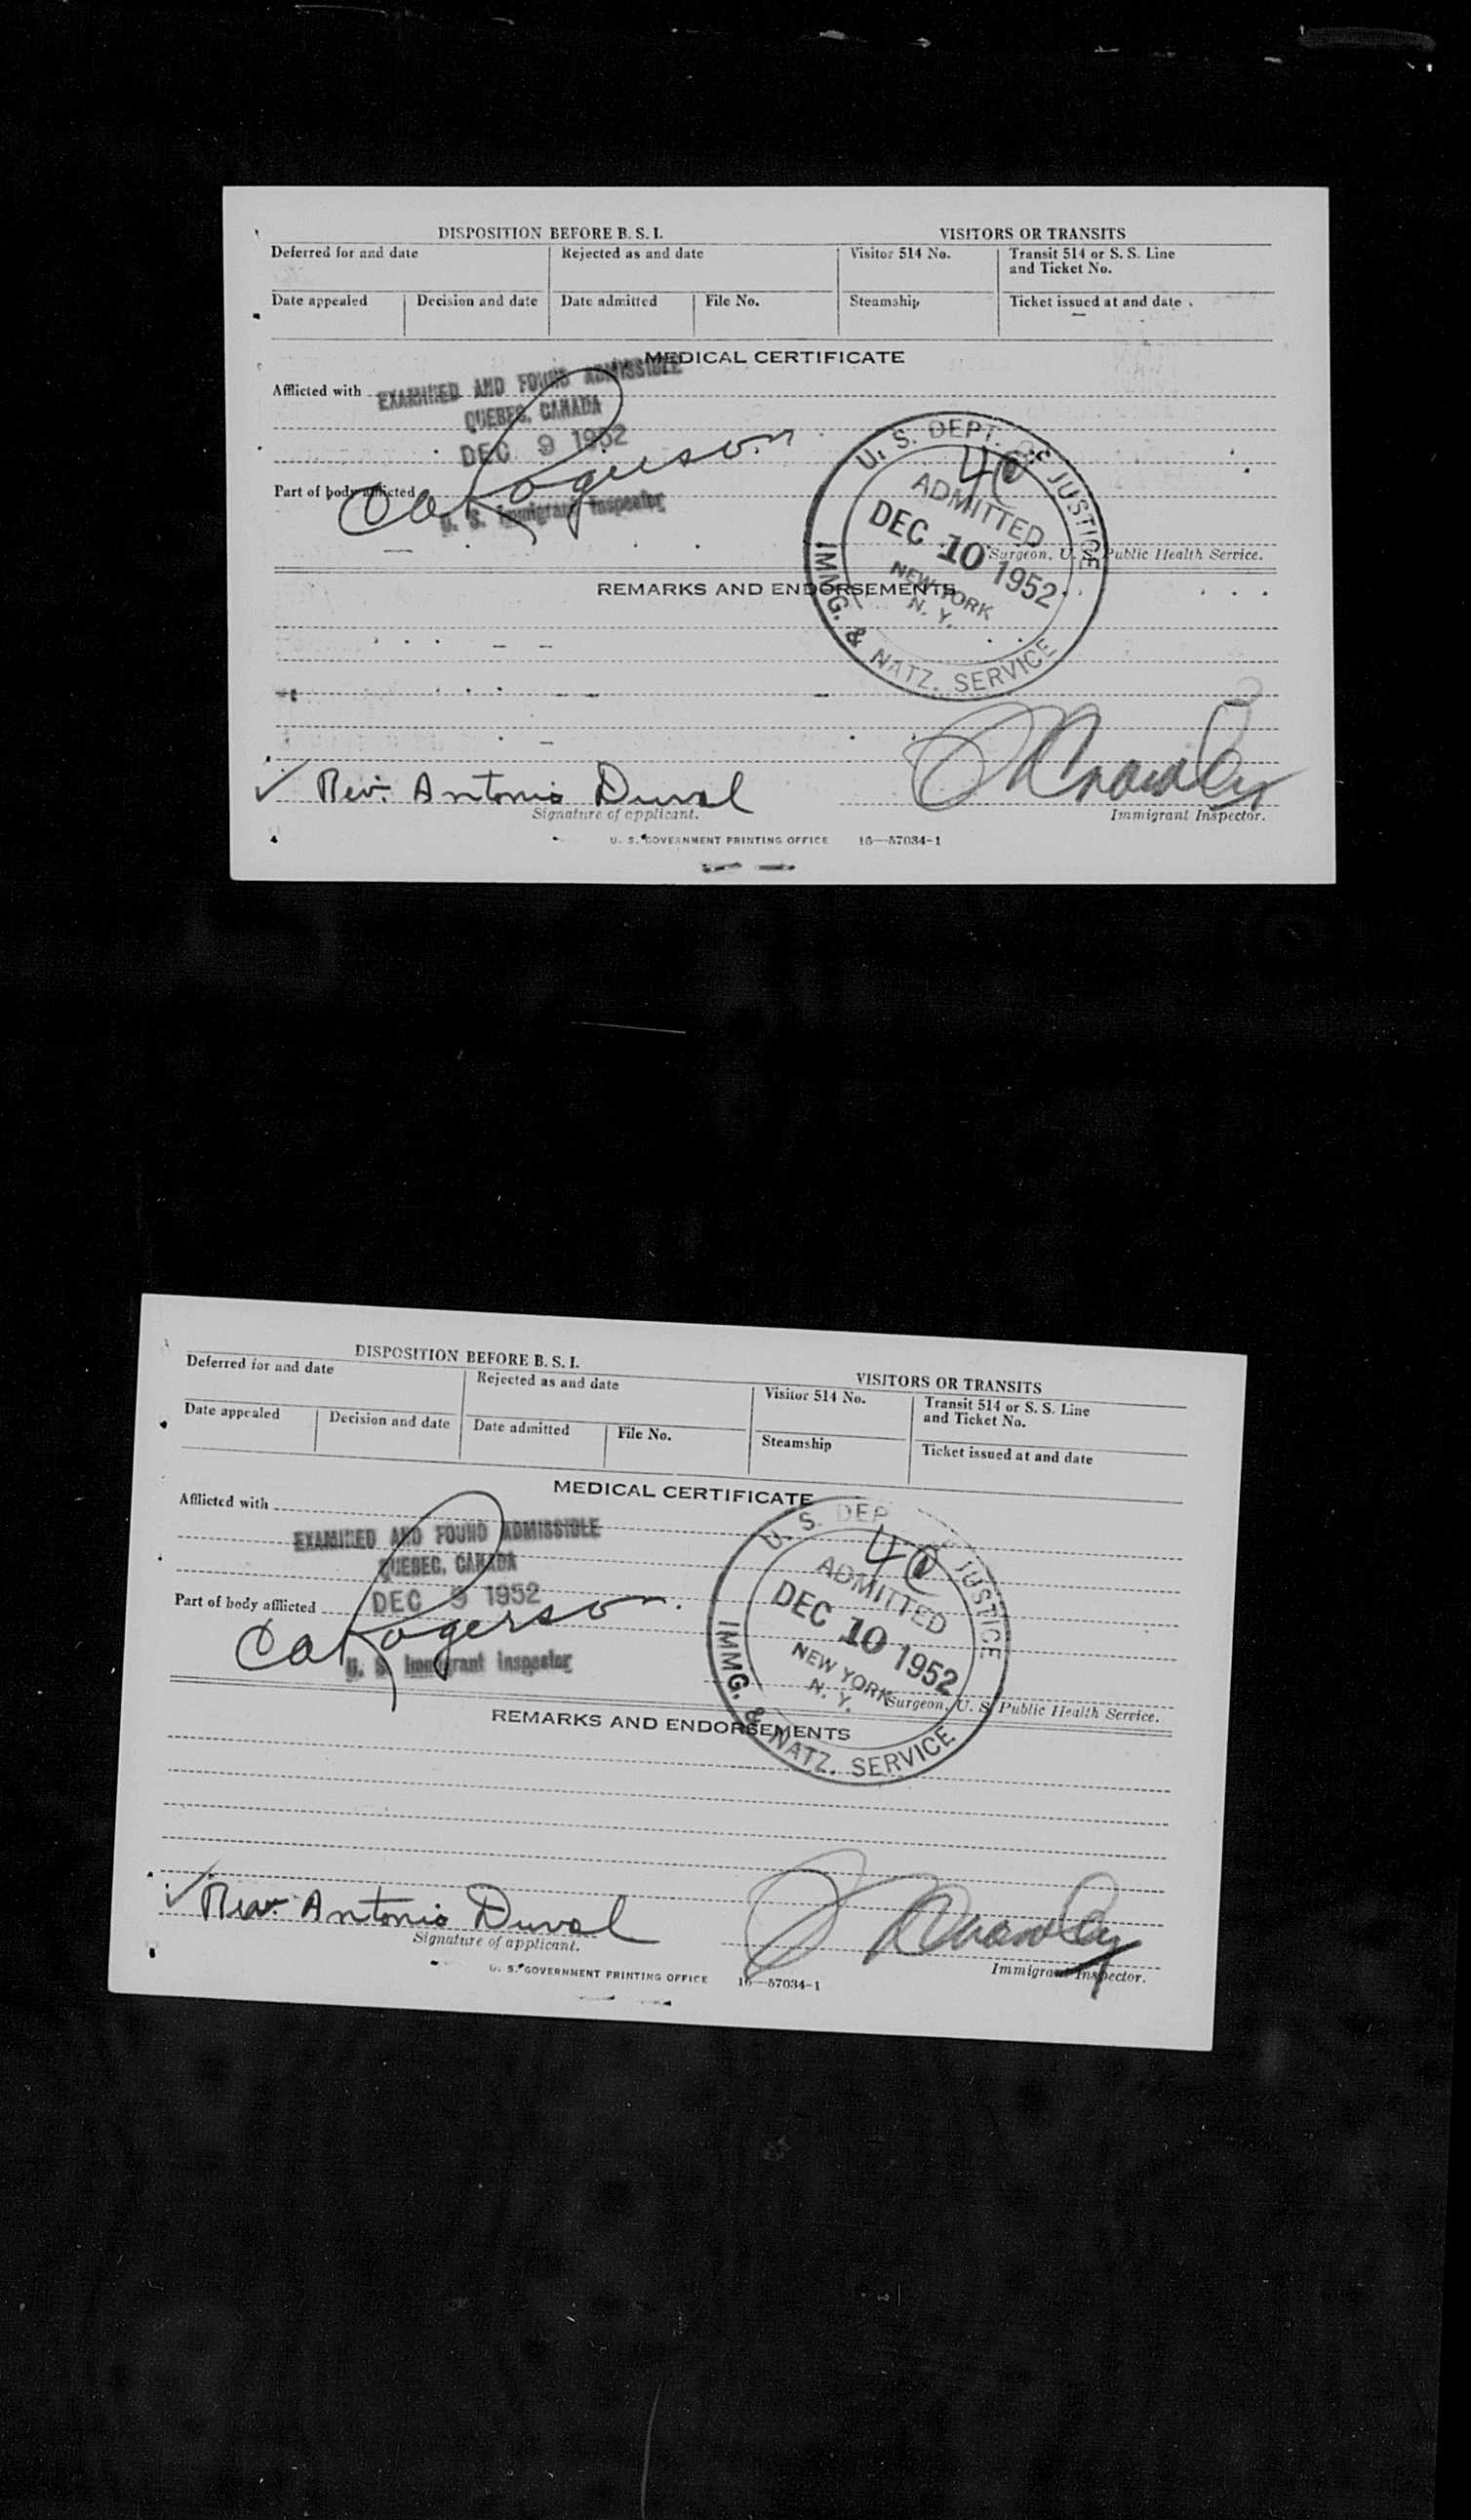 DISPOSITION BEFORE B. S. I.
VISITORS OR TRANSITS
Deferred for and date
Rejected as and date
Visitor 514 No.
Transit 514 or S. S. Line
and Ticket No.
Date appealed
Decision and date
Date admitted
File No.
Steamship
Ticket issued at and date
MEDICAL CERTIFICATE
Afflicted with
EXAMINED AND FOUND ADMISSIBLE
QUEBEC, CANADA
DEC 9 1952
Part of body afflicted
CA Rogerson
U. S. Immigrant Inspector
U. S. DEPT. OF JUSTICE
40
ADMITTED
DEC 10 1952
NEW YORK
N. Y.
IMMG. & NATZ. SERVICE
Surgeon, U. S. Public Health Service.
REMARKS AND ENDORSEMENTS
Rev. Antonio Duval
Signature of applicant.
Immigrant Inspector.
U. S. GOVERNMENT PRINTING OFFICE 16—57034-1
DISPOSITION BEFORE B. S. I.
VISITORS OR TRANSITS
Deferred for and date
Rejected as and date
Visitor 514 No.
Transit 514 or S. S. Line
and Ticket No.
Date appealed
Decision and date
Date admitted
File No.
Steamship
Ticket issued at and date
MEDICAL CERTIFICATE
Afflicted with
EXAMINED AND FOUND ADMISSIBLE
QUEBEC, CANADA
DEC 9 1952
Part of body afflicted
CA Rogerson
U. S. Immigrant Inspector
U. S. DEPT. OF JUSTICE
40
ADMITTED
DEC 10 1952
NEW YORK
N. Y.
IMMG. & NATZ. SERVICE
Surgeon, U. S. Public Health Service.
REMARKS AND ENDORSEMENTS
Rev. Antonio Duval
Signature of applicant.
Immigrant Inspector.
U. S. GOVERNMENT PRINTING OFFICE 16—57034-1